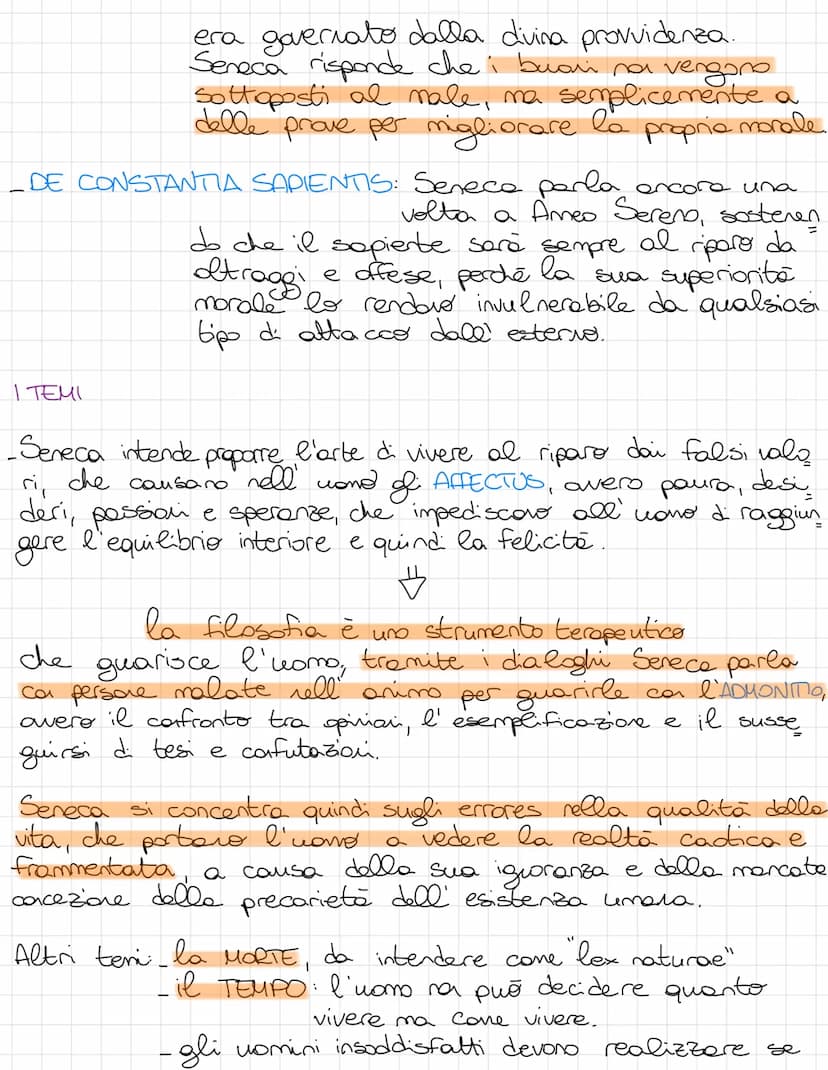 era governato dalla divina provvidenza.
Seneca risponde che i buoni non vengono
sottoposti al male, ma semplicemente a
delle prove per migliorare la propria morale.
- DE CONSTANTIA SAPIENTIS: Seneca parla ancora una
volta a Anneo Sereno, sostenen
do che il sapiente sarà sempre al riparo da
oltraggi e offese, perché la sua superiorità
morale lo rendono invulnerabile da qualsiasi
tipo di attacco dall'esterno.
I TEMI
- Seneca intende proporre l'arte di vivere al riparo dai falsi valo
ri, che causano nell'uomo gli AFFECTUS, ovvero paura, desi
deri, passioni e speranze, che impediscono all'uomo di raggiun
gere l'equilibrio interiore e quindi la felicità.
⇓
la filosofia è uno strumento terapeutico
che guarisce l'uomo, tramite i dialoghi Seneca parla
con persone malate nell'animo per guarirle con l'ADMONITIO,
ovvero il confronto tra opinioni, l'esemplificazione e il susse
guirsi di tesi e confutazioni.
Seneca si concentra quindi sugli errores nella qualità della
vita, che portano l'uomo a vedere la realtà caotica e
frammentata, a causa della sua ignoranza e della mancata
concezione della precarietà dell'esistenza umana.
Altri temi: - la MORTE, da intendere come "lex naturae"
- il TEMPO: l'uomo non può decidere quanto
vivere ma come vivere.
- gli uomini insoddisfatti devono realizzare se